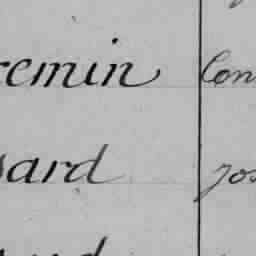 remin Con
sard Jos